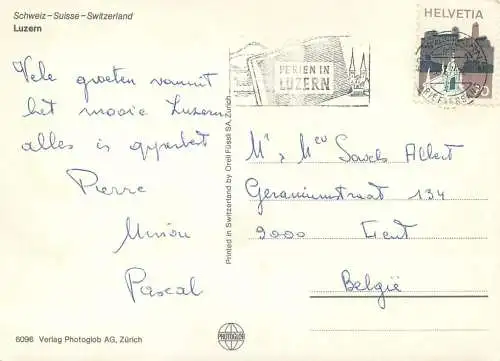 Schweiz – Suisse – Switzerland
Luzern
Vele groeten vanuit
het mooie Luzern
alles is opperbest
Pierre
Pascal
6096 Verlag Photoglob AG, Zürich
Printed in Switzerland by Orell Füssli SA, Zürich
PHOTOGLOB
FERIEN IN
LUZERN
HELVETIA
BRIEFVERSAND
Albert
Geraniumstraat 134
9000 Gent
België